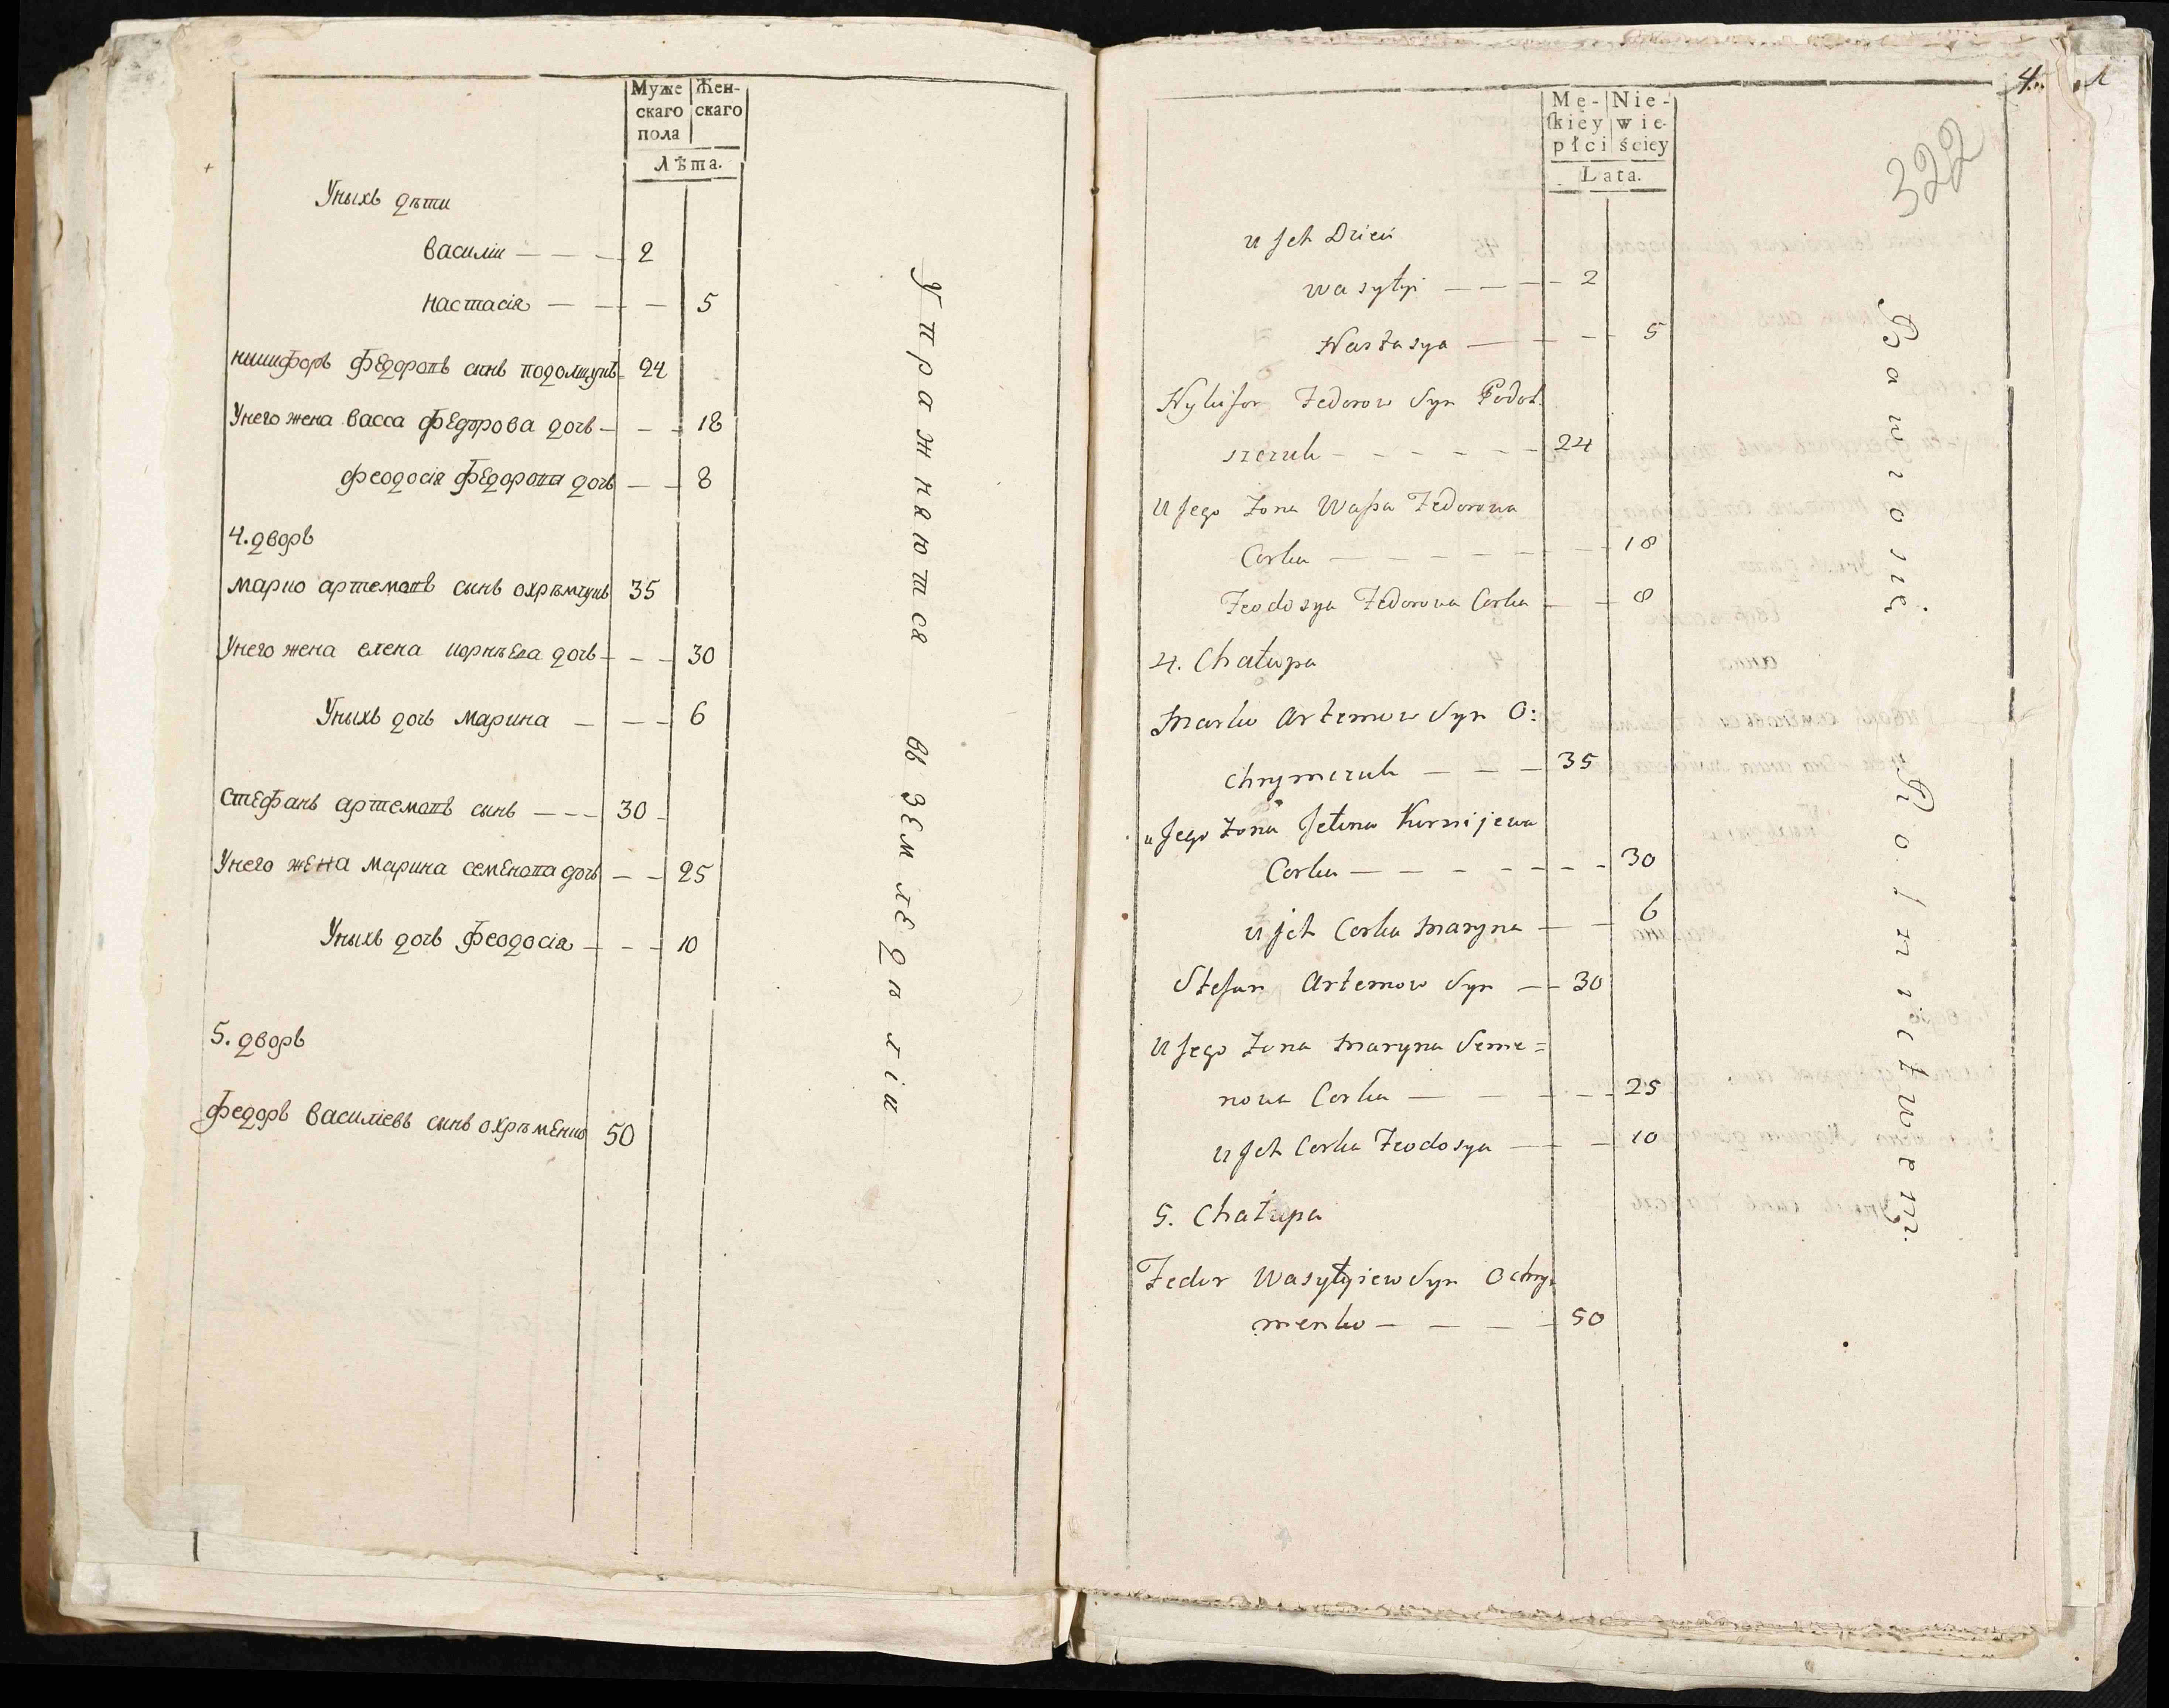 Муже
скаго
пола
Жен-
скаго
Лѣта.
Уныхъ дѣти
василіи — — — 2
настасія — — — 5
никифоръ федоровъ синъ подолщукъ 24
Унего жена васса федорова дочь — — — 18
феодосія федорова дочь — — 8
4. дворъ
марко артемовъ сынъ охрѣмчукъ 35
Унего жена елена корнѣева дочь — — — 30
Уныхъ дочь марина — — — 6
стефанъ артемовъ сынъ — — — 30
Унего жена марина семенова дочь — — 25
Уныхъ дочь феодосія — — — 10
5. дворъ
федоръ василіевъ синъ охрѣменко 50
Упражняются въ земледѣліи
4.
322
Mę-
skiey
płci
Nie-
wie-
ściey
Lata.
u Jch Dzieci
wasylyi — — — 2
Nastasya — — — 5
Nykifor Fedorow Syn Podol
szczuk — — — — — — 24
u Jego Zona Wassa Fedorowa
Corka — — — — — — 18
Feodosya Fedorowa Corka — — 8
4. Chałupa
Marko Artemow Syn O:
chrymczuk — — — 35
u Jego Zona Jełena Kornijewa
Corka — — — — — — — 30
u jch Corka Maryna — — 6
Stefan Artemow Syn — — 30
u Jego Zona Maryna Seme =
nowa Corka — — — — — 25
u Jch Corka Feodosya — — — 10
5. Chałupa
Fedor Wasylyiew Syn Ochry:
menko — — — — 50
Bawio się Rolnictwem.